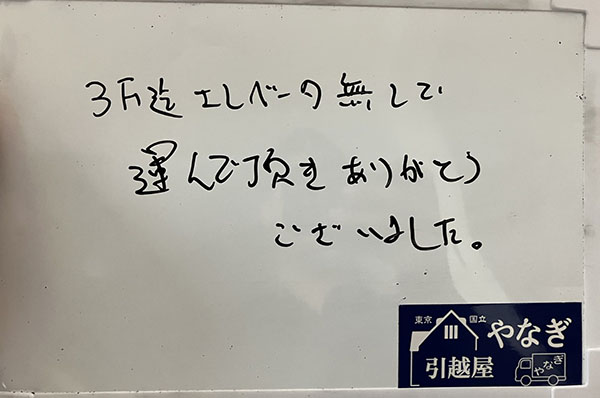 3F迄エレベータ無しで
運んで頂きありがとう
ございました。
東京 国立
やなぎ
引越屋
やなぎ